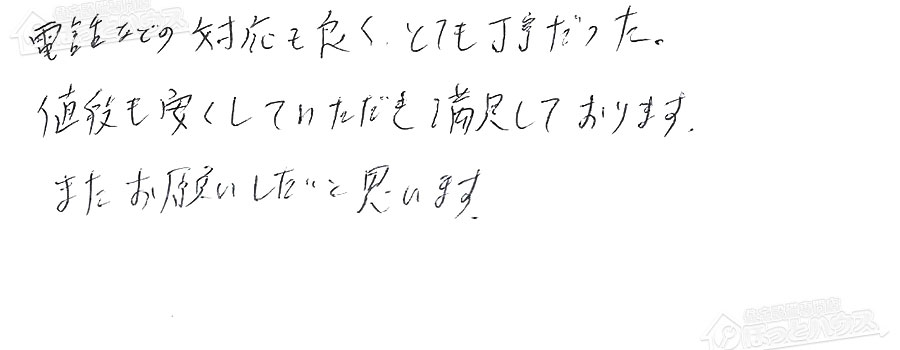 電話などの対応も良く、とても丁寧だった。
値段も安くしていただき満足しております。
またお願いしたいと思います。
住宅設備専門店
ほっとハウス